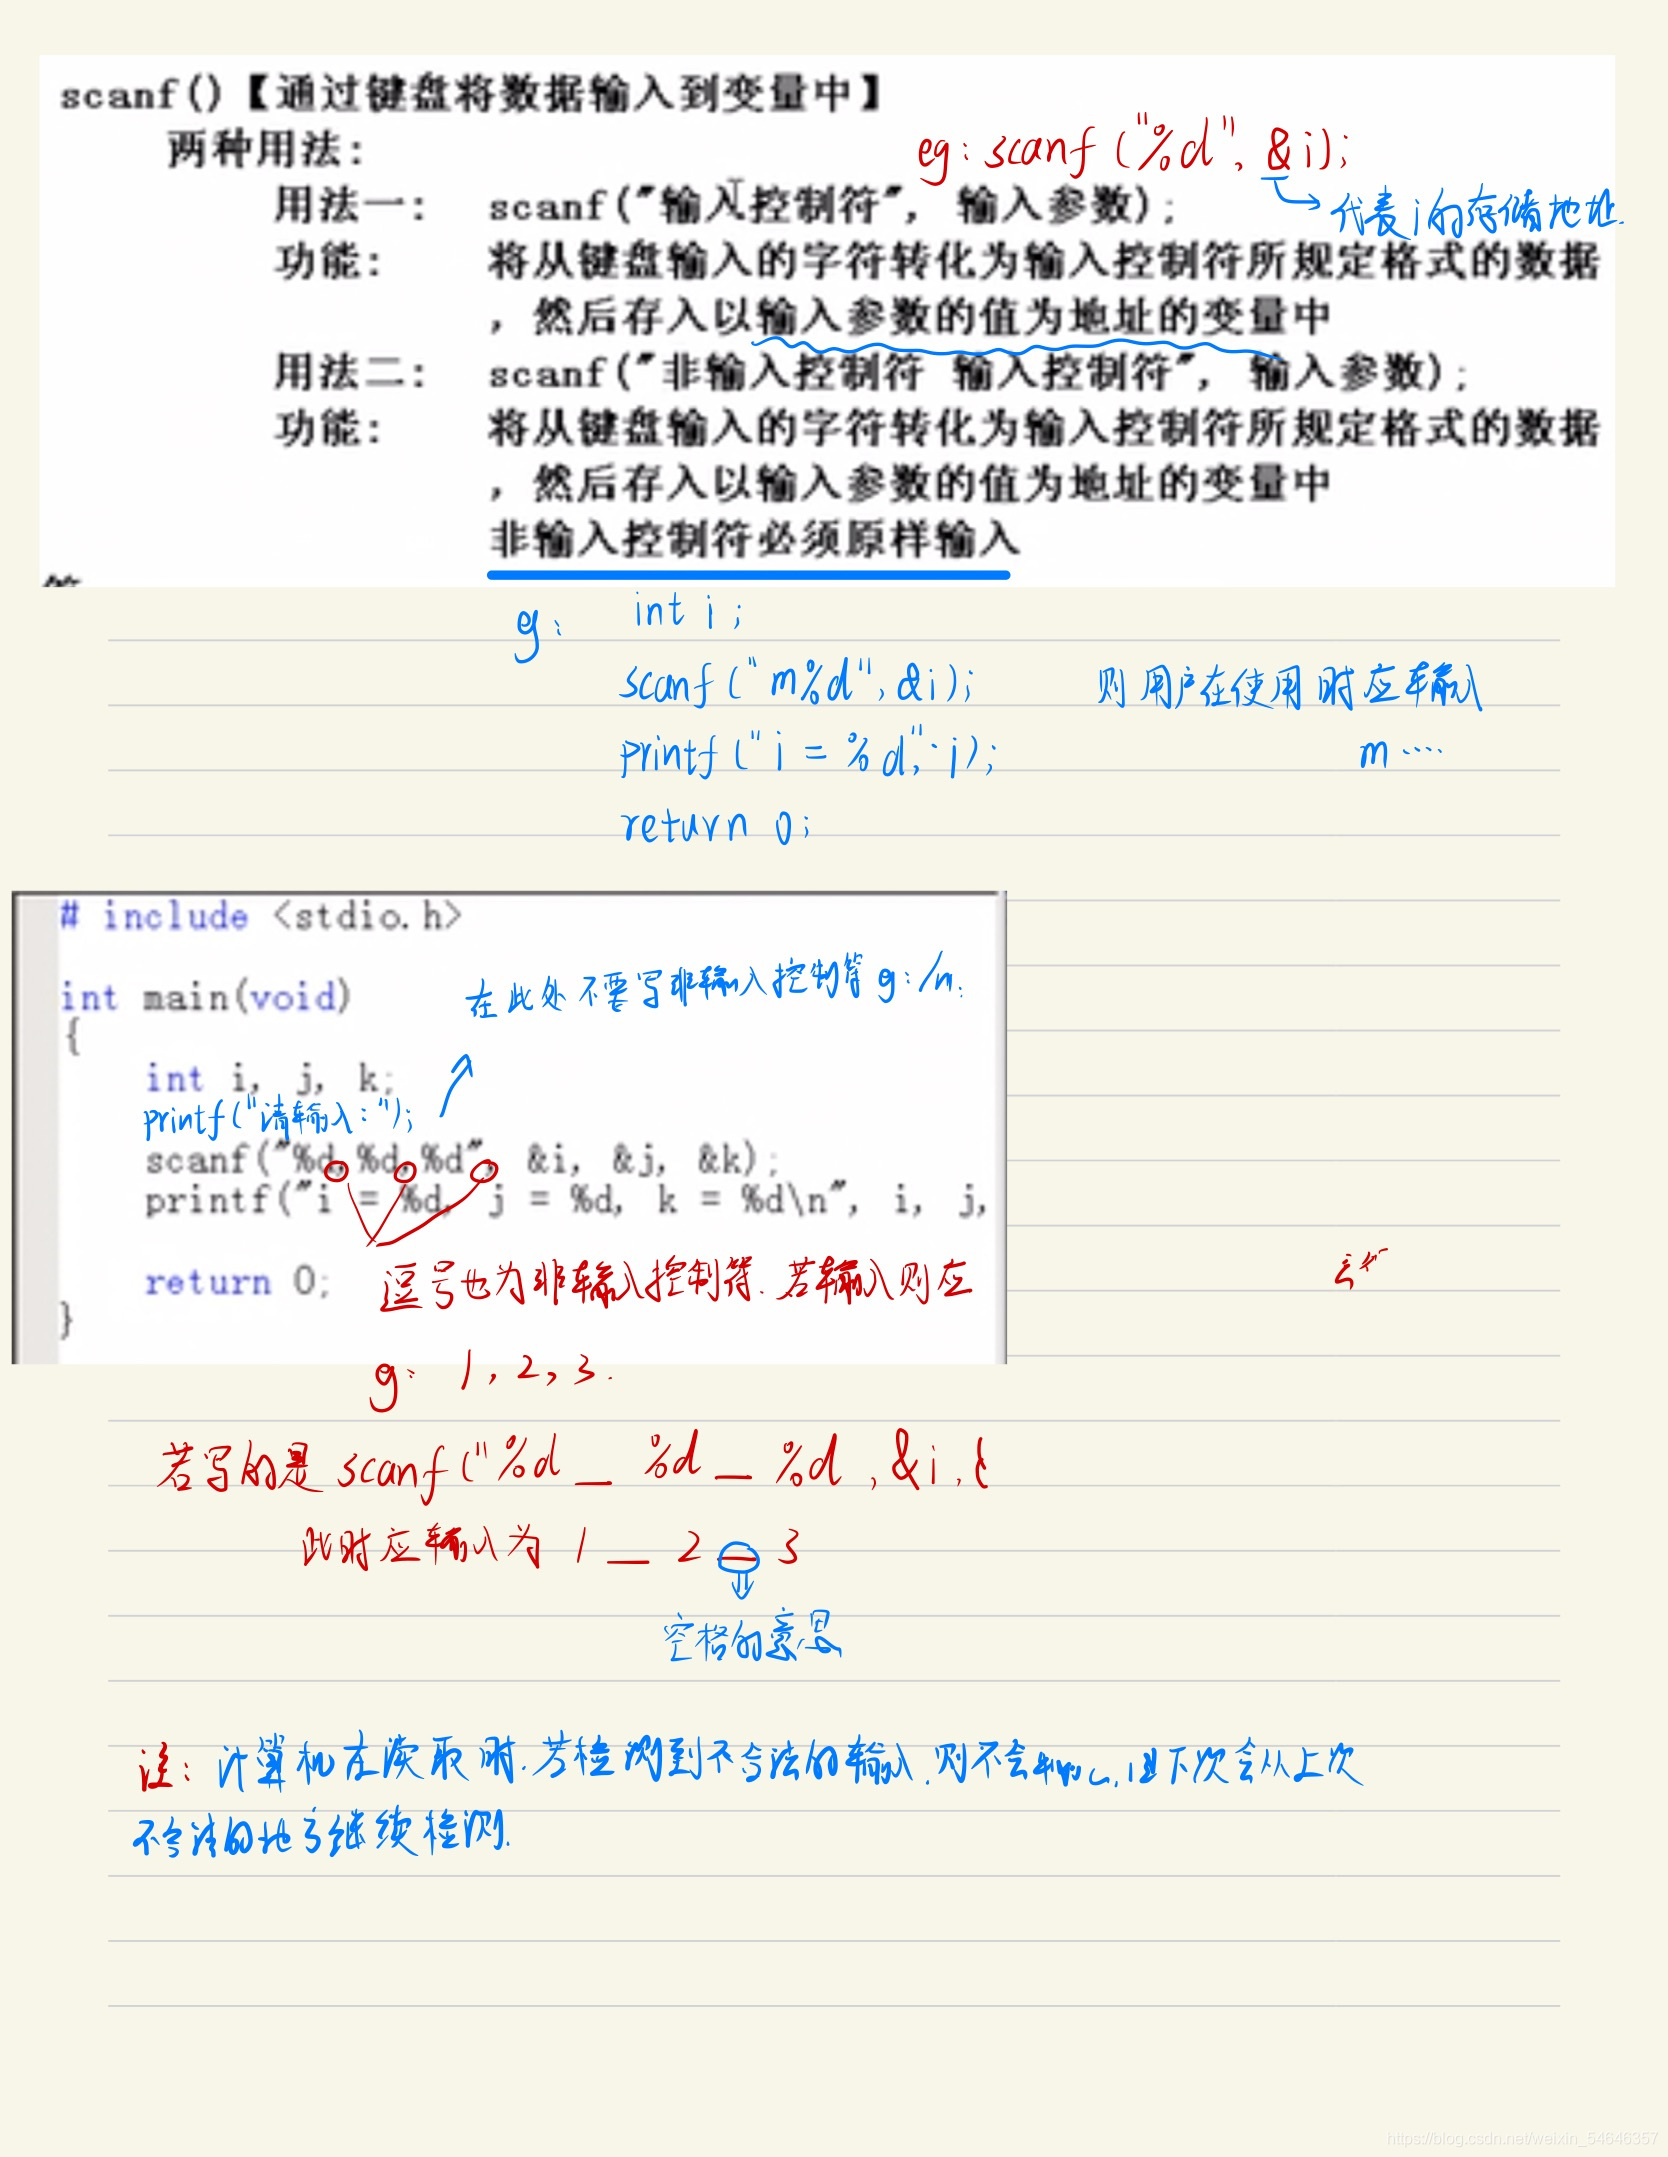 scanf()【通过键盘将数据输入到变量中】
两种用法：
eg：scanf("%d", &i);
用法一： scanf("输入控制符", 输入参数);
代表i的存储地址.
功能： 将从键盘输入的字符转化为输入控制符所规定格式的数据
，然后存入以输入参数的值为地址的变量中
用法二： scanf("非输入控制符 输入控制符", 输入参数);
功能： 将从键盘输入的字符转化为输入控制符所规定格式的数据
，然后存入以输入参数的值为地址的变量中
非输入控制符必须原样输入
eg： int i;
scanf("m%d", &i); 则用户在使用时应输入
printf("i = %d", i); m ····
return 0;
# include <stdio.h>
int main(void) 在此处不要写非输入控制符 eg: /n.
{
int i, j, k;
printf("请输入：");
scanf("%d,%d,%d", &i, &j, &k);
printf("i = %d, j = %d, k = %d\n", i, j,
return 0;
逗号也为非输入控制符. 若输入则应
}
eg: 1, 2, 3.
若写的是 scanf("%d _ %d _ %d ,&i,&
此时应输入为 1 _ 2 _ 3
空格的意思
注：计算机在读取时.若检测到不合法的输入.则不会 下次会从上次
不合法的地方继续检测.
https://blog.csdn.net/weixin_54646357